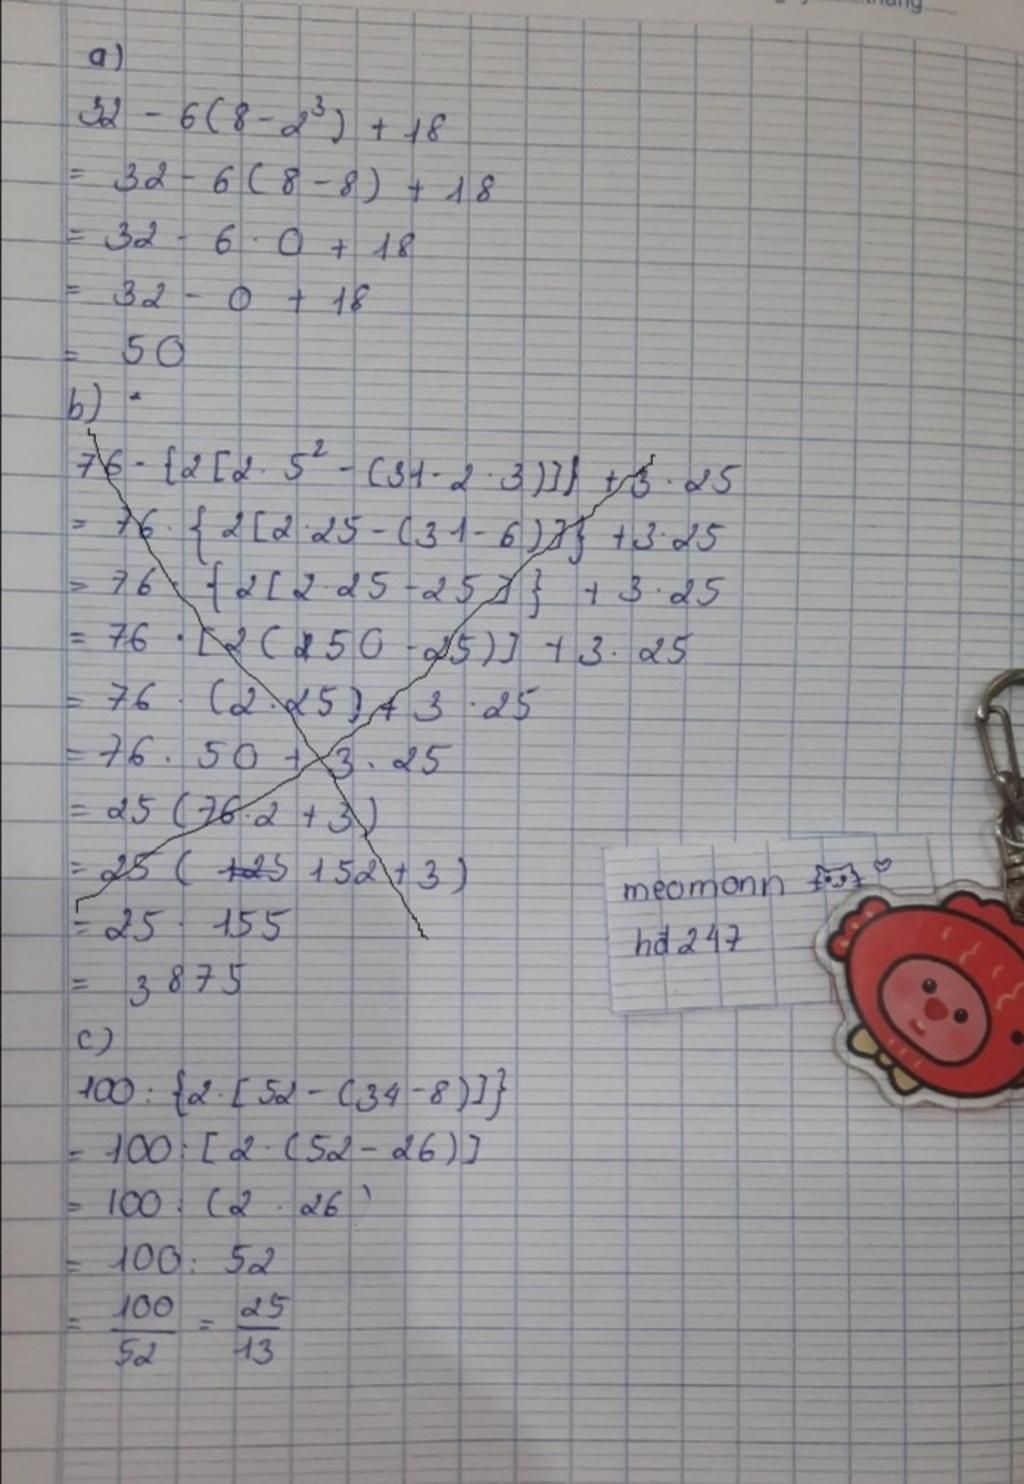 thang......
a)
32 - 6(8 - 2³) + 18
= 32 - 6(8 - 8) + 18
= 32 - 6 · 0 + 18
= 32 - 0 + 18
= 50
b)
76 - {2[2 · 5² - (31 - 2 · 3)]} + 3 · 25
= 76 · {2[2 · 25 - (31 - 6)]} + 3 · 25
= 76 · {2[2 · 25 - 25]} + 3 · 25
= 76 · [2(50 - 25)] + 3 · 25
= 76 · (2 · 25) + 3 · 25
= 76 · 50 + 3 · 25
= 25(76 · 2 + 3)
= 25(152 + 3)
= 25 · 155
= 3875
meomonn
hd247
c)
100 : {2 · [52 - (34 - 8)]}
= 100 : [2 · (52 - 26)]
= 100 : (2 · 26)
= 100 : 52
= 100/52 = 25/13